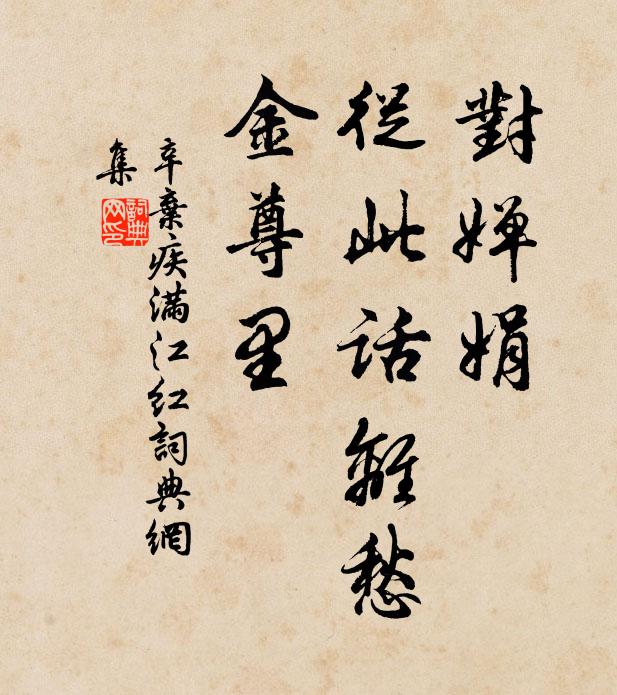 對嬋娟
從此話離愁
金尊里
辛棄疾滿江紅詞典網
集
詞典網印